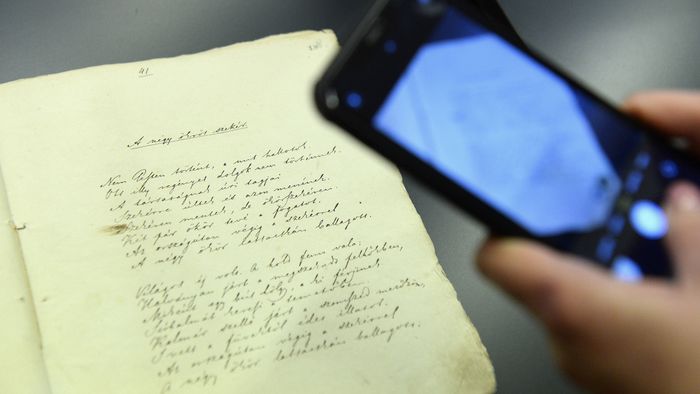 41
A négy ökrös szekér
Nem Pesten történt, a mit hallotok.
Ott illy regényes dolgok nem történnek.
A társaságnak úri tagjai
Szekérre ültek és azon menének.
Szekéren mentek, de ökörszekéren.
Két pár ökör tevé a fogatot.
Az országúton végig a szekérrel
A négy ökör lassacskán ballagott.
Világos éj volt. A hold fenn vala;
Halványan járt a megszakadt felhőkben,
Miként egy bús hölgy, a ki férjinek
Sírhalmát keresi a temetőben.
Kalmár szellő járt a szomszéd mezőkön,
S vett a füvektől édes illatot.
Az országúton végig a szekérrel
A négy ökör lassacskán ballagott.